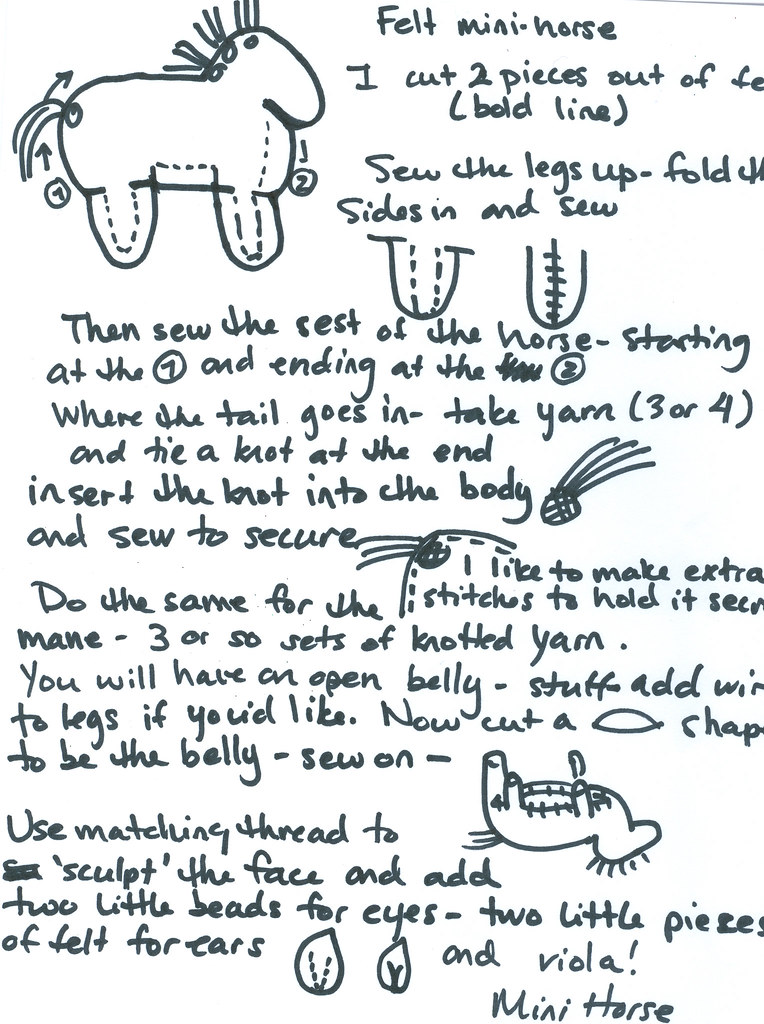 Felt mini-horse
1 cut 2 pieces out of fe
(bold line)
Sew the legs up - fold th
Sides in and sew
1
2
Then sew the rest of the horse - starting
at the 1 and ending at the 2
Where the tail goes in - take yarn (3 or 4)
and tie a knot at the end
insert the knot into the body
and sew to secure
I like to make extra
stitches to hold it secr
Do the same for the
mane - 3 or so sets of knotted yarn.
You will have an open belly - stuff - add wir
to legs if you'd like. Now cut a shap
to be the belly - sew on -
Use matching thread to
'sculpt' the face and add
two little beads for eyes - two little pieces
of felt for ears and viola!
Mini Horse